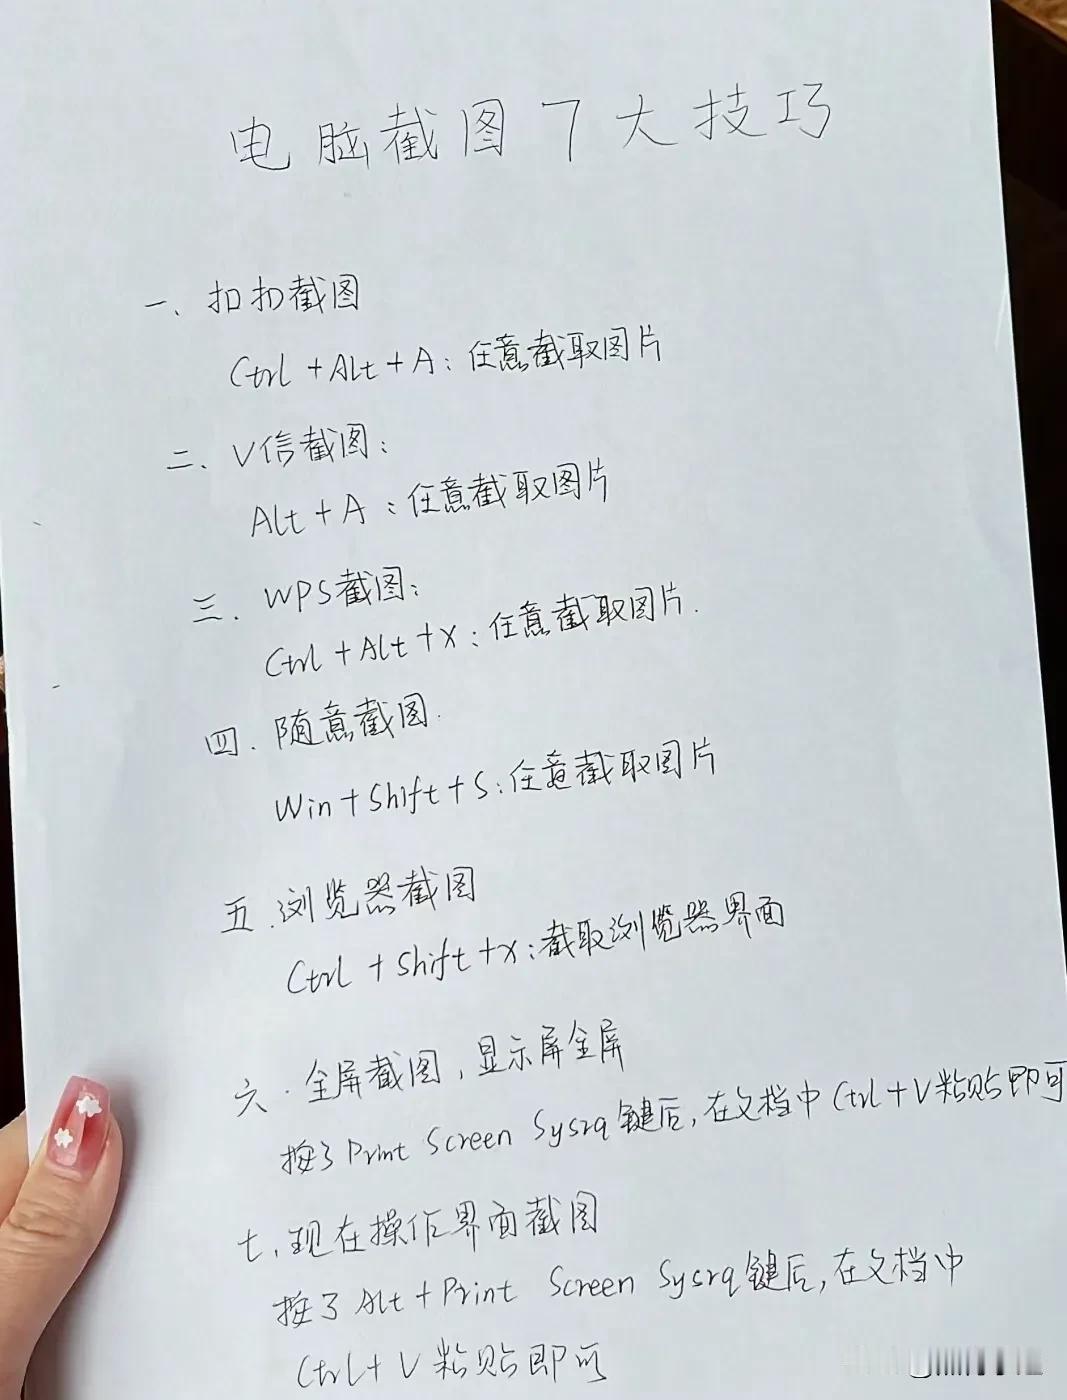 电脑截图7大技巧
一、扣扣截图
Ctrl+Alt+A：任意截取图片
二、V信截图：
Alt+A：任意截取图片
三.WPS截图：
Ctrl+Alt+X：任意截取图片.
四.随意截图.
Win+Shift+S:任意截取图片
五.浏览器截图
Ctrl+Shift+X:截取浏览器界面
六.全屏截图,显示屏全屏
按了Print Screen Sysrq键后,在文档中Ctrl+V粘贴即可
七.现在操作界面截图
按了Alt+Print Screen Sysrq键后,在文档中
Ctrl+V粘贴即可